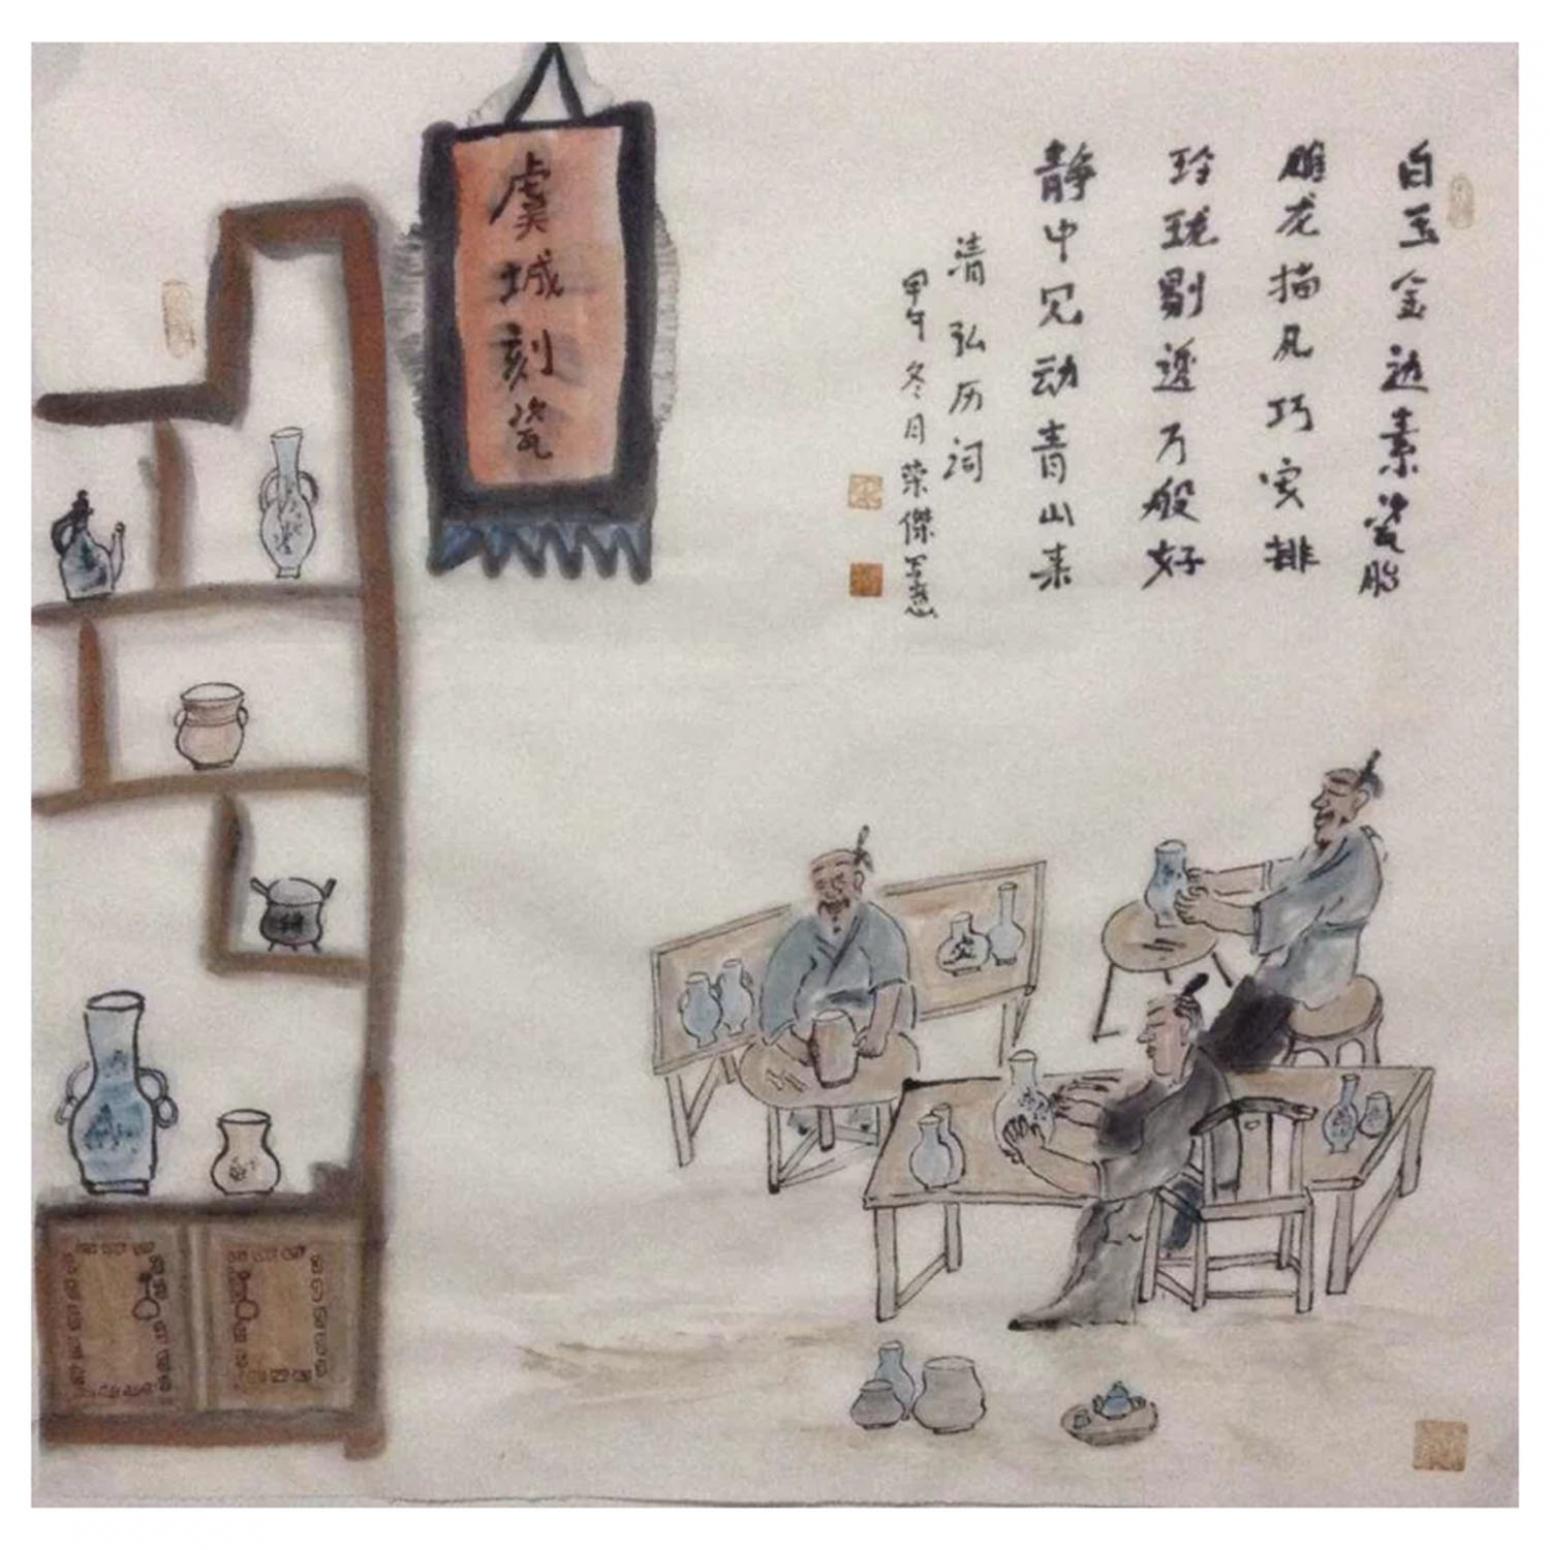 白玉金边素瓷胎
雕龙描凤巧安排
玲珑剔透万般好
静中见动青山来
清弘历词
甲午冬月荣傑写意
虞城刻瓷